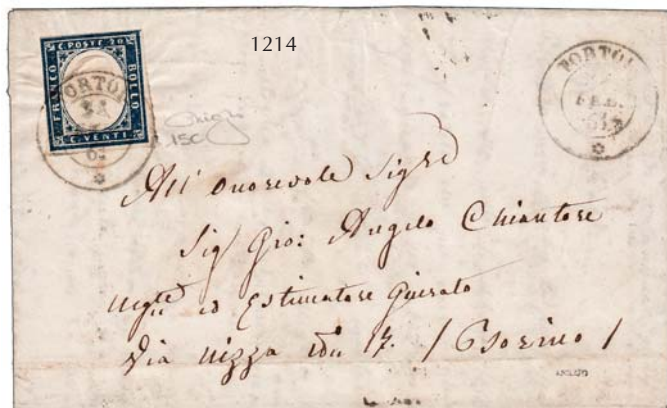 1214
C. POSTE 20
FRANCO
BOLLO
C. VENTI.
TORTO
TORTO
FEB.
15C
All' Onorevole Sigre
Sig Gio: Angelo Chiantore
ed Estimatore Giurato
Via Nizza 17. / Torino /